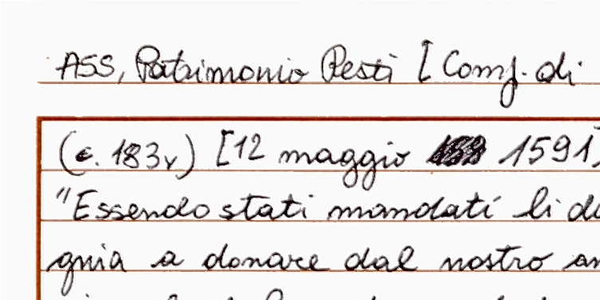 ASS, Patrimonio Resti [Comp. di
(c. 183v) [12 maggio 1591]
"Essendo stati mandati li
gnia a donare dal nostro